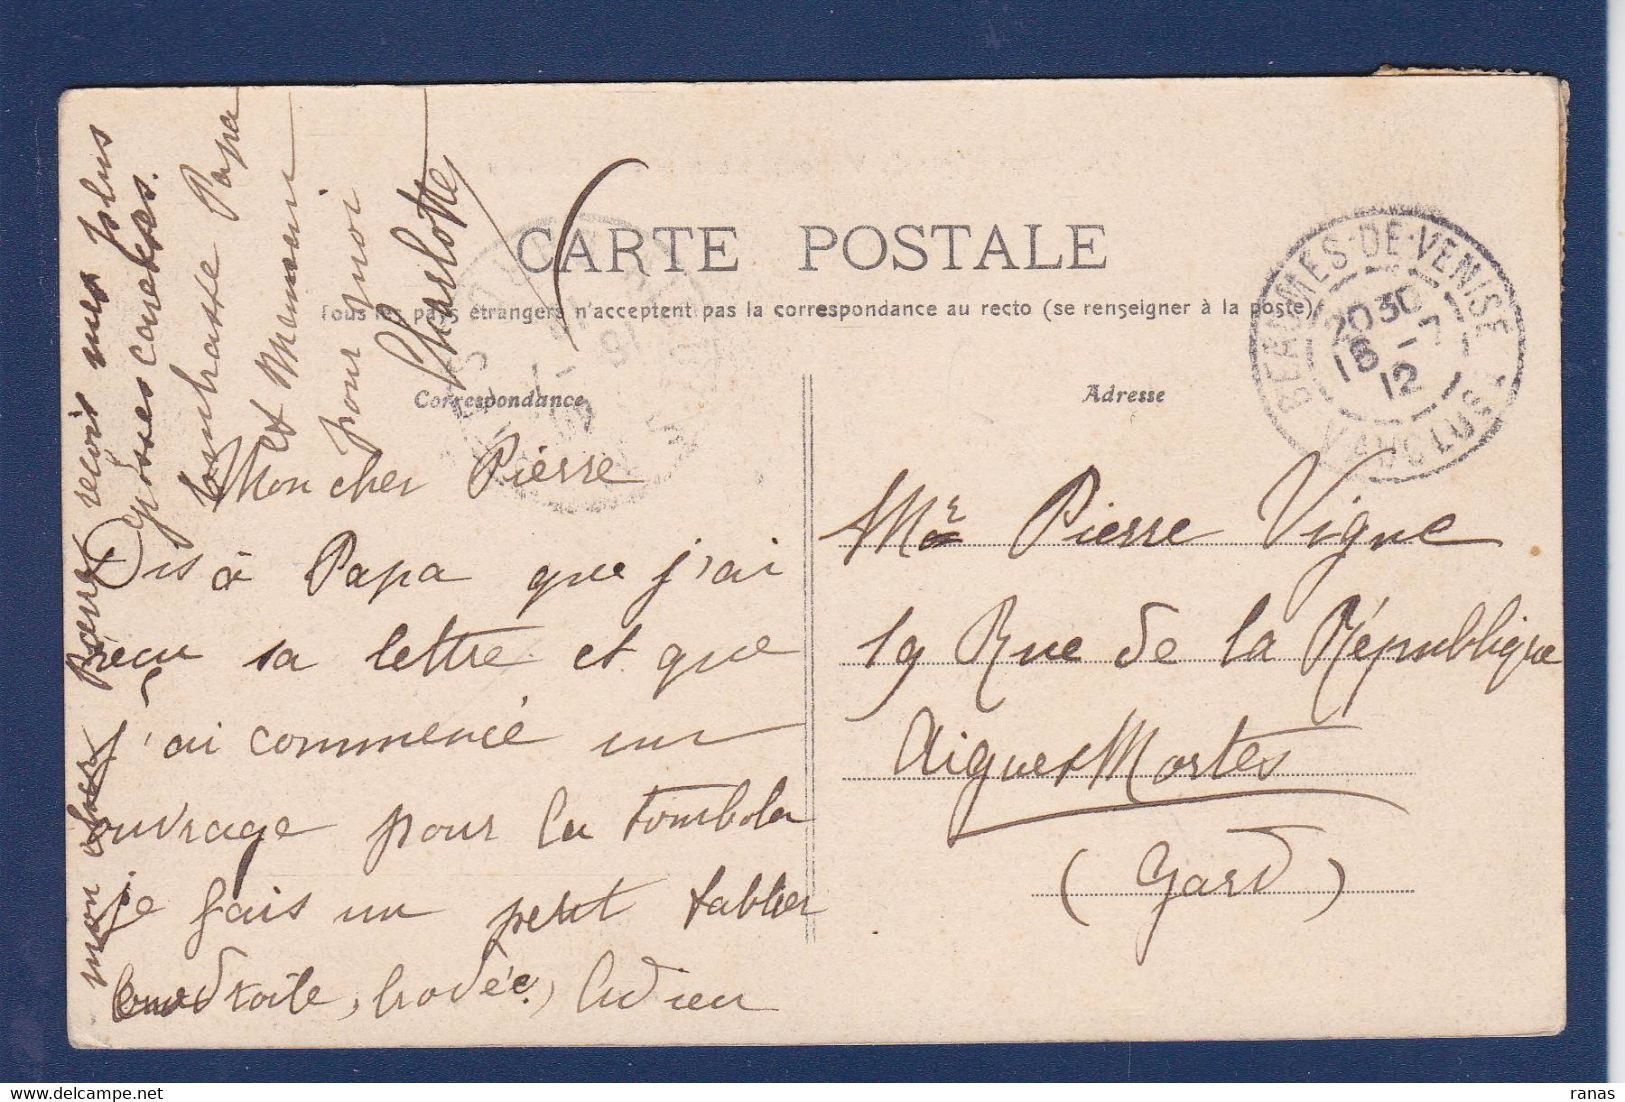 CARTE POSTALE
Tous les pays étrangers n'acceptent pas la correspondance au recto (se renseigner à la poste)
Correspondance
Adresse
BEAUMES-DE-VENISE
2030
18 -7
12
VAUCLUSE
Mon cher Pierre
Dis à Papa que j'ai
reçu sa lettre et que
j'ai commencé un
ouvrage pour la tombola
je fais un petit tablier
toile, brodée, Adieu
mon cher Pierre reçois mes plus
grosses caresses.
embrasse Papa
et Maman
pour moi
Charlotte
Mr Pierre Vigne
19 Rue de la République
Aigues Mortes
(Gard)
ranas